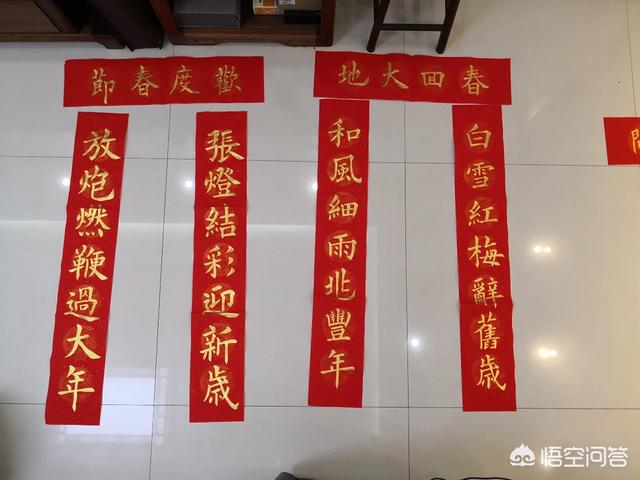 春回大地
白雪紅梅辭舊歳
和風細雨兆豐年
歡度春節
張燈結彩迎新歳
放炮燃鞭過大年
悟空问答